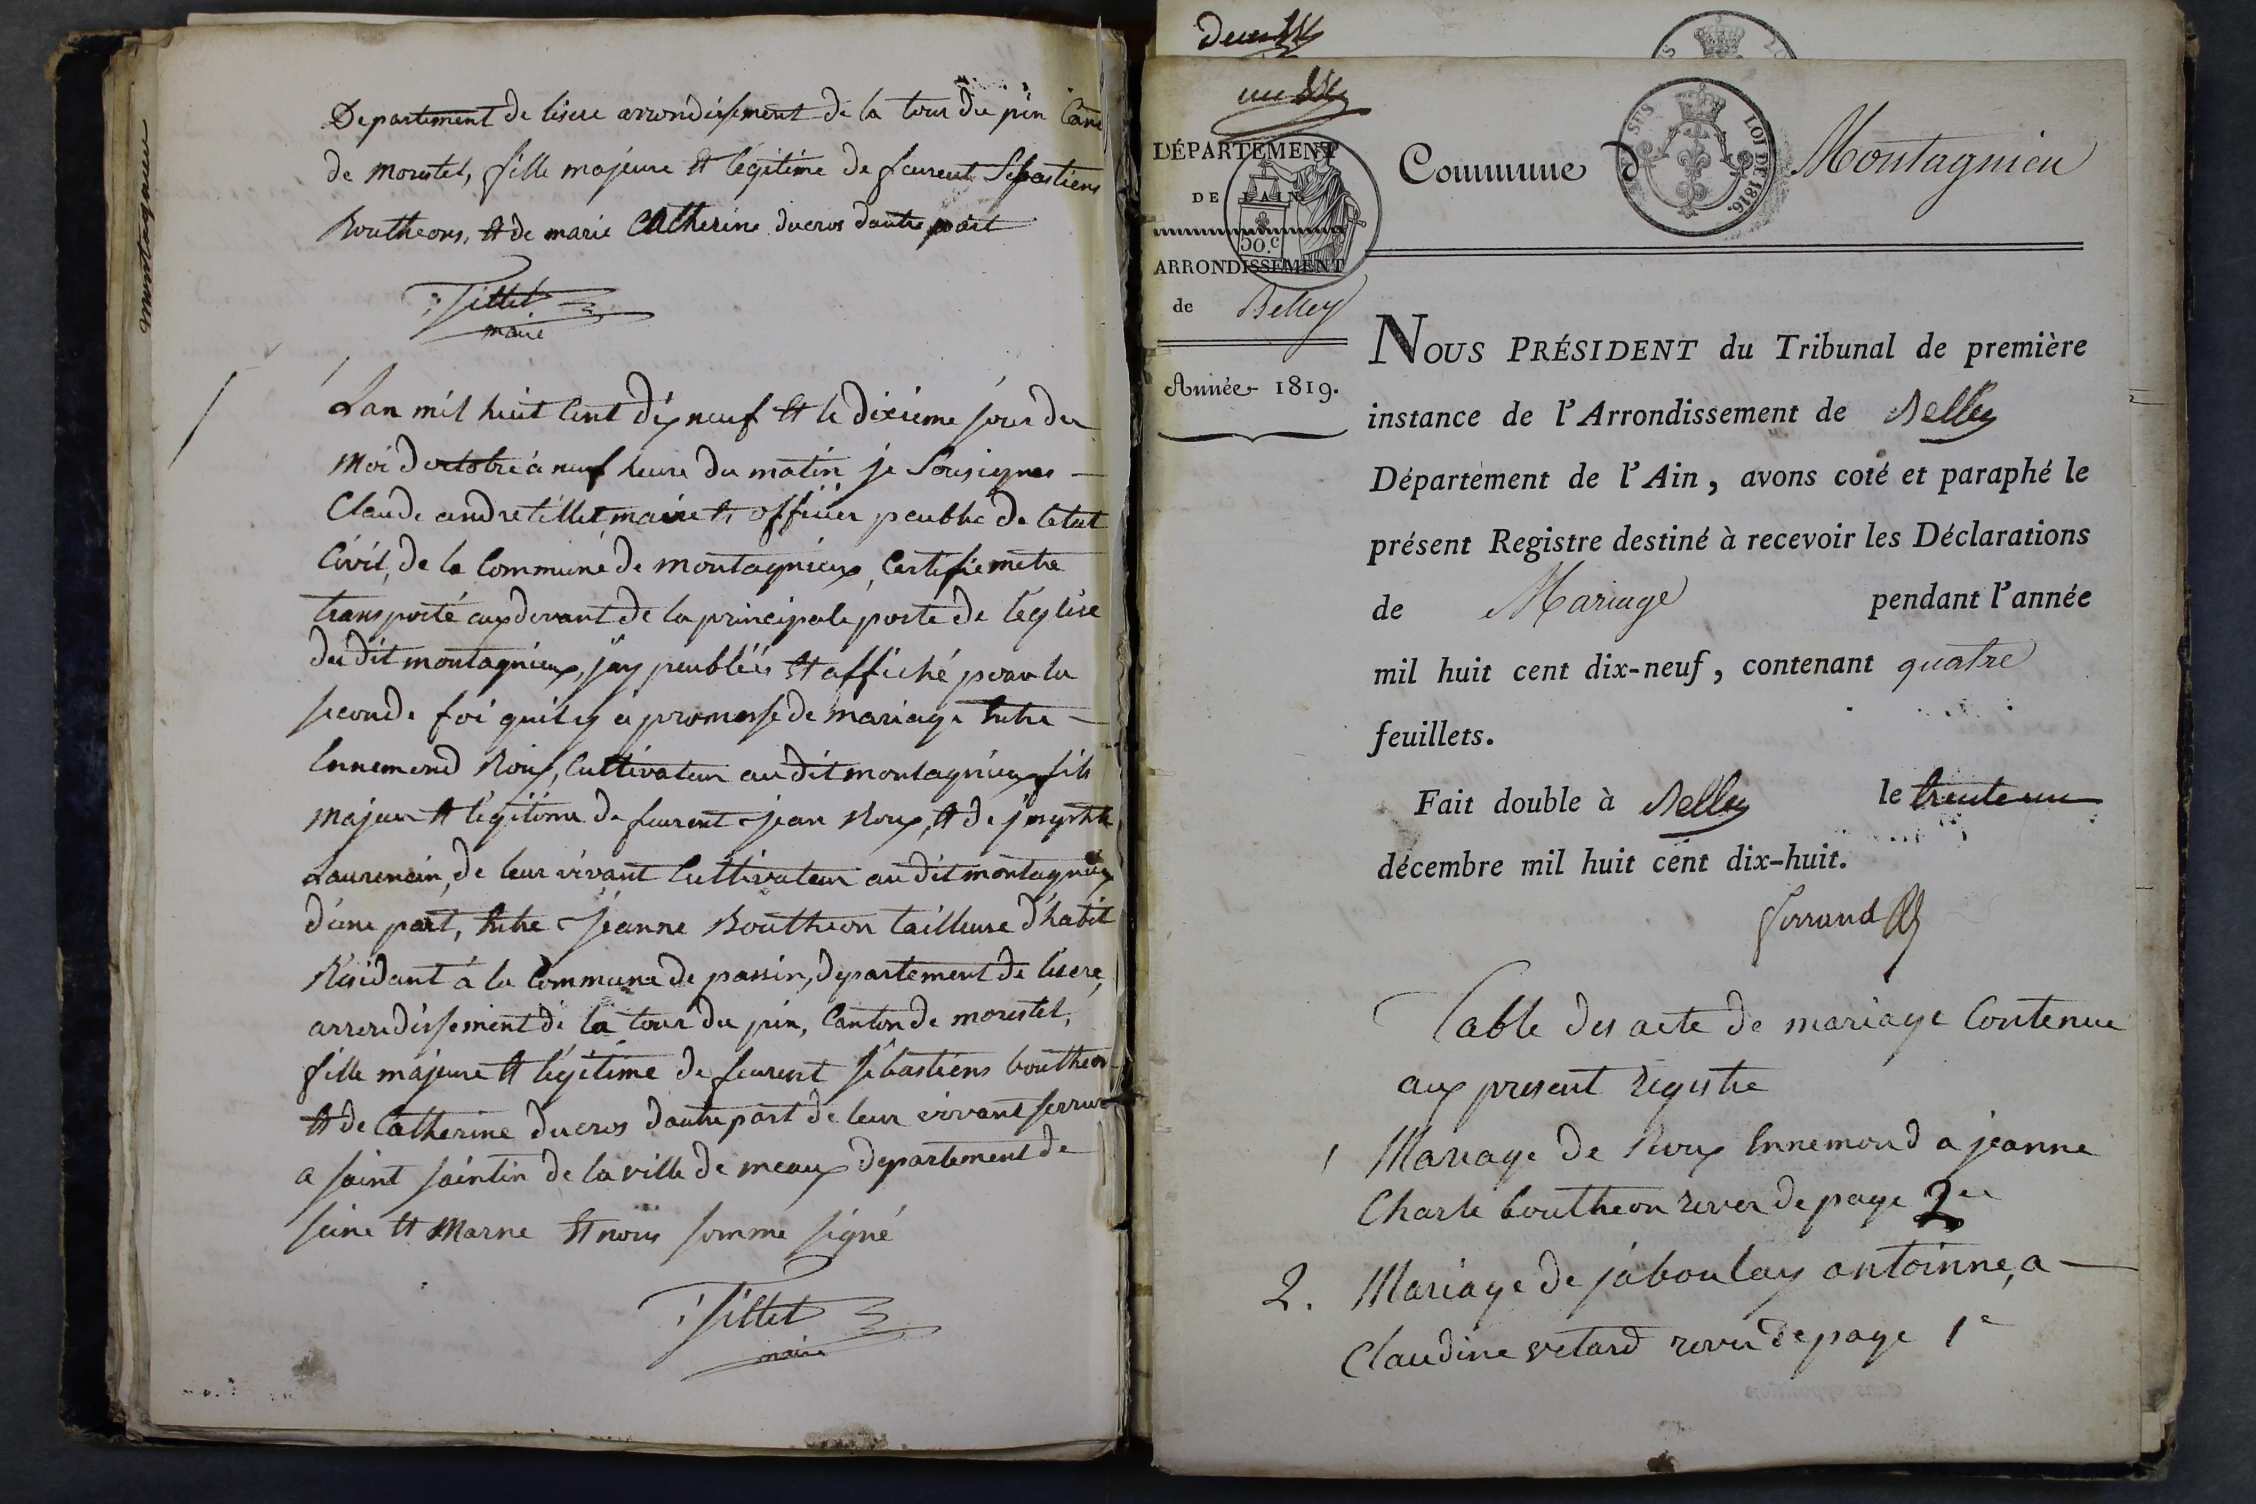 Departement de lisere arrondissement de la tour du pin Can
de morestel, fille majeure et legitime de feurent Sebastiens
Boutheons, et de marie Catherine ducros dautre part
Tillet
maire
Montagnieu
Lan mil huit Cent dix neuf et le dixieme jour du
moi doctobre a neuf heure du matin je Sousignes
Claude andre tillet maire et officier peublic de letat
Civil, de la Commune de montagnieux, Certifie metre
transporté aux devant de la principale porte de leglise
du dit montagnieux, jay peubliés et affiché pour la
seconde foi quil y a promesse de mariage Entre
Ennemond Roux, Cultivateur au dit montagnieux fils
majeur et legitime de feurent jean Roux, et de
Laurencin, de leur vivant Cultivateur au dit montagnieux
d'une part, Entre jeanne Boutheon tailleure d'habit
Residant a la Commune de passin, departement de lisere,
arrondissement de la tour du pin, Canton de morestel,
fille majeure et légitime de feurent sébastiens boutheon
et de Catherine ducros dautre part de leur vivant serrur
a saint saintin de la ville de meaux departement de
seine et Marne et nous somme signé
Tillet
maire
DÉPARTEMENT
DE L'AIN
50.c
ARRONDISSEMENT
de Belley
Année 1819.
Commune d Montagnieu
LOI DE 1816.
NOUS PRÉSIDENT du Tribunal de première
instance de l'Arrondissement de Belley
Département de l'Ain, avons coté et paraphé le
présent Registre destiné à recevoir les Déclarations
de Mariage pendant l'année
mil huit cent dix-neuf, contenant quatre
feuillets.
Fait double à Belley le trente un
décembre mil huit cent dix-huit.
Ferrand
Table des acte de mariage Contenue
aux present registre
1 Mariage de Roux Ennemond a jeanne
Charle boutheon rever de page 2
2. Mariage de jaboulay antoinne, a
Claudine vetard rever de page 1e